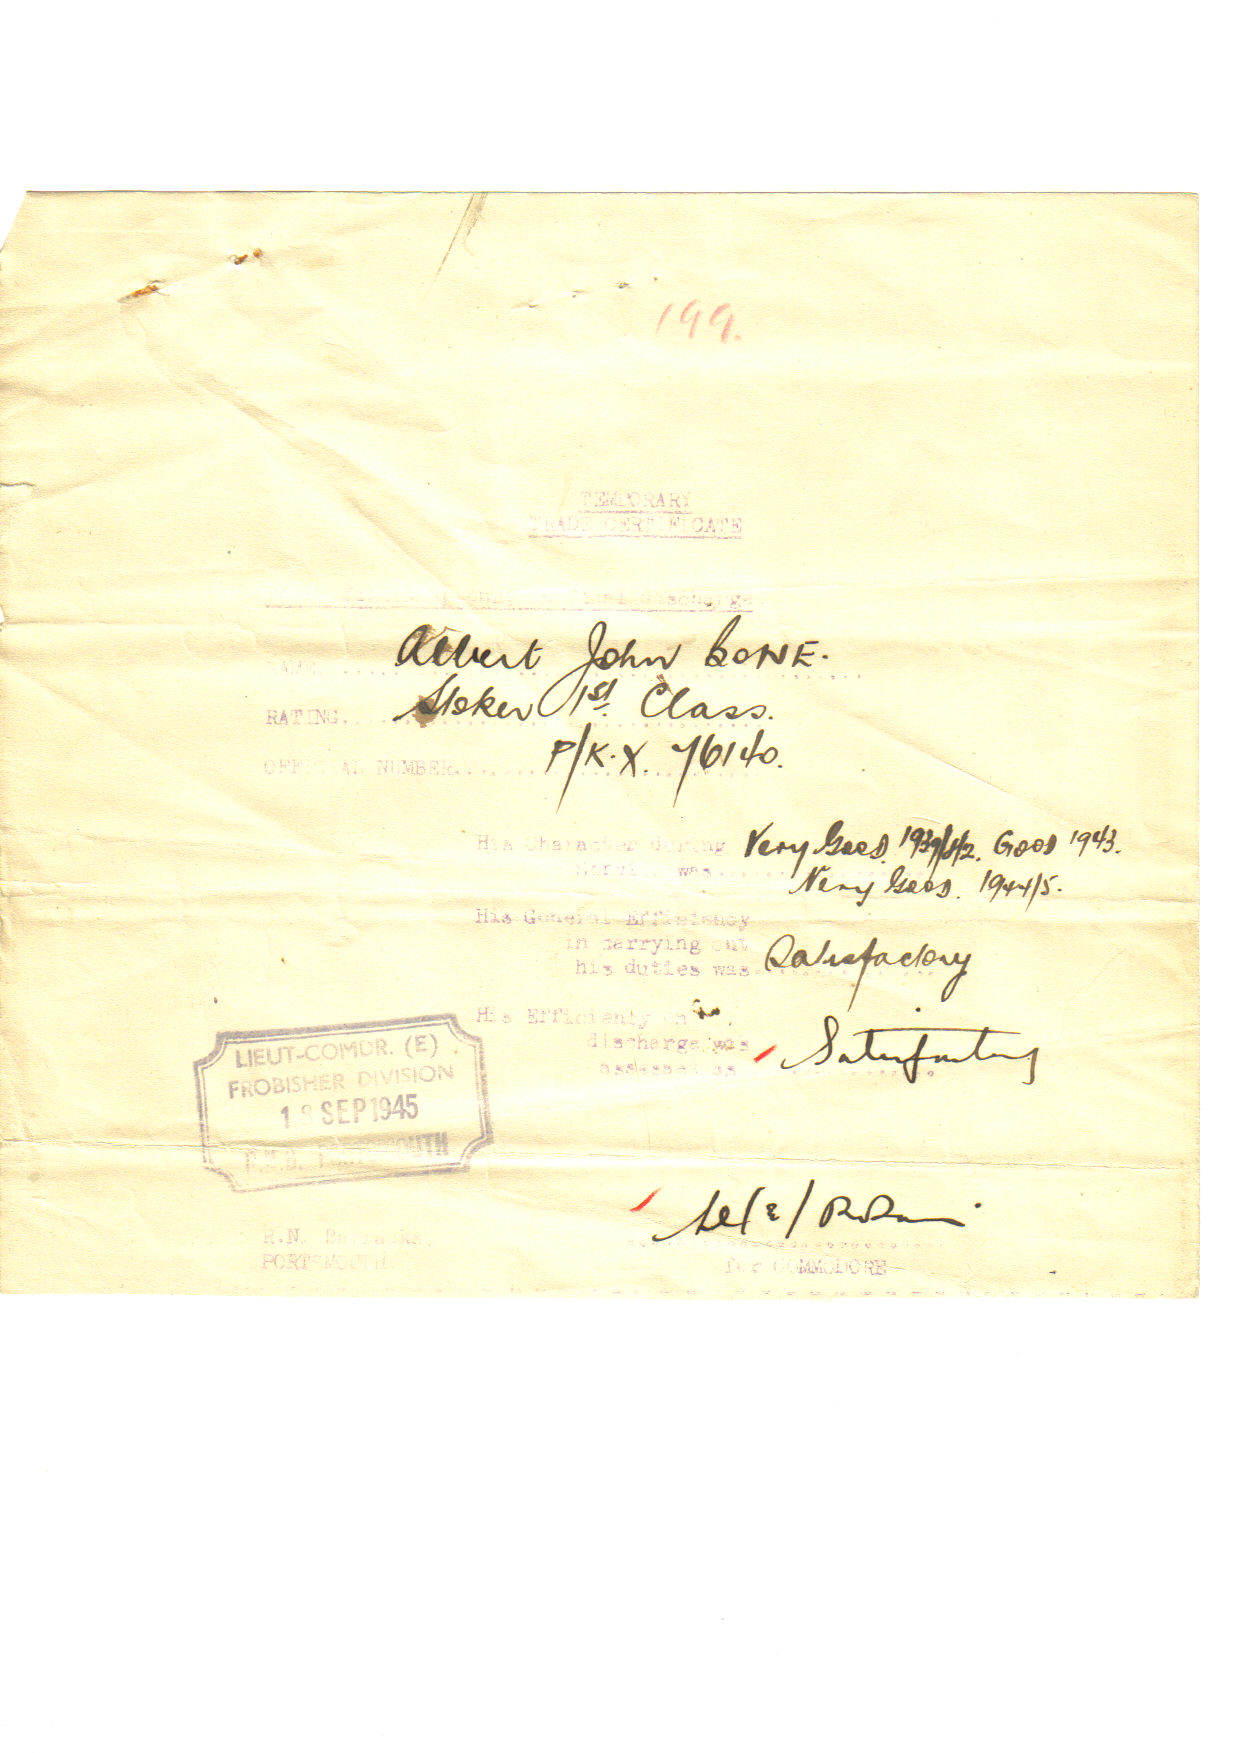 199.
TEMPORARY
TRADE CERTIFICATE
final discharge
NAME Albert John BONE.
RATING Stoker 1st. Class.
OFFICIAL NUMBER P/K.X. 76140.
His Character during Very Good 1939/42. Good 1943.
Service was Very Good. 1944/5.
His General Efficiency
in carrying out
his duties was Satisfactory
His Efficiency on
discharge was
assessed as Satisfactory
LIEUT-COMDR. (E).
FROBISHER DIVISION
SEP 1945
R.N.B. PORTSMOUTH
R.N. Barracks,
PORTSMOUTH.
for COMMODORE